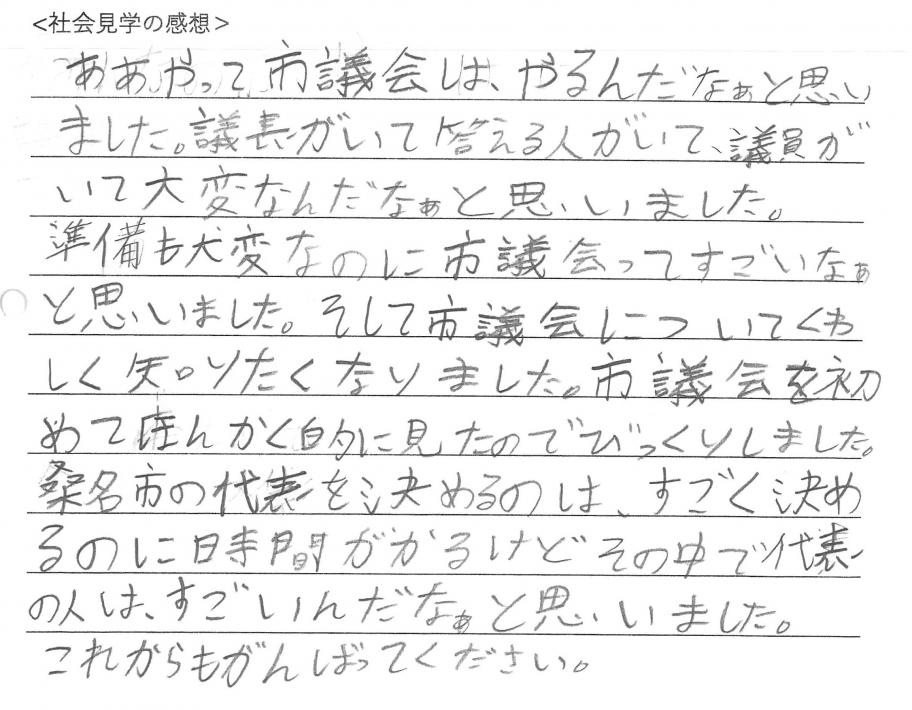 <社会見学の感想>
ああやって市議会は、やるんだなぁと思い
ました。議長がいて答える人がいて、議員が
いて大変なんだなぁと思いしいました。
準備も大変なのに市議会ってすごいなぁ
と思いました。そして市議会についてくわ
しく知りたくなりました。市議会を初
めてほんかく的に見たのでびっくりしました。
桑名市の代表を決めるのは、すごく決め
るのに時間ががるけどその中で代表
の人は、すごいんだなぁと思いいました。
これからもがんばってください。